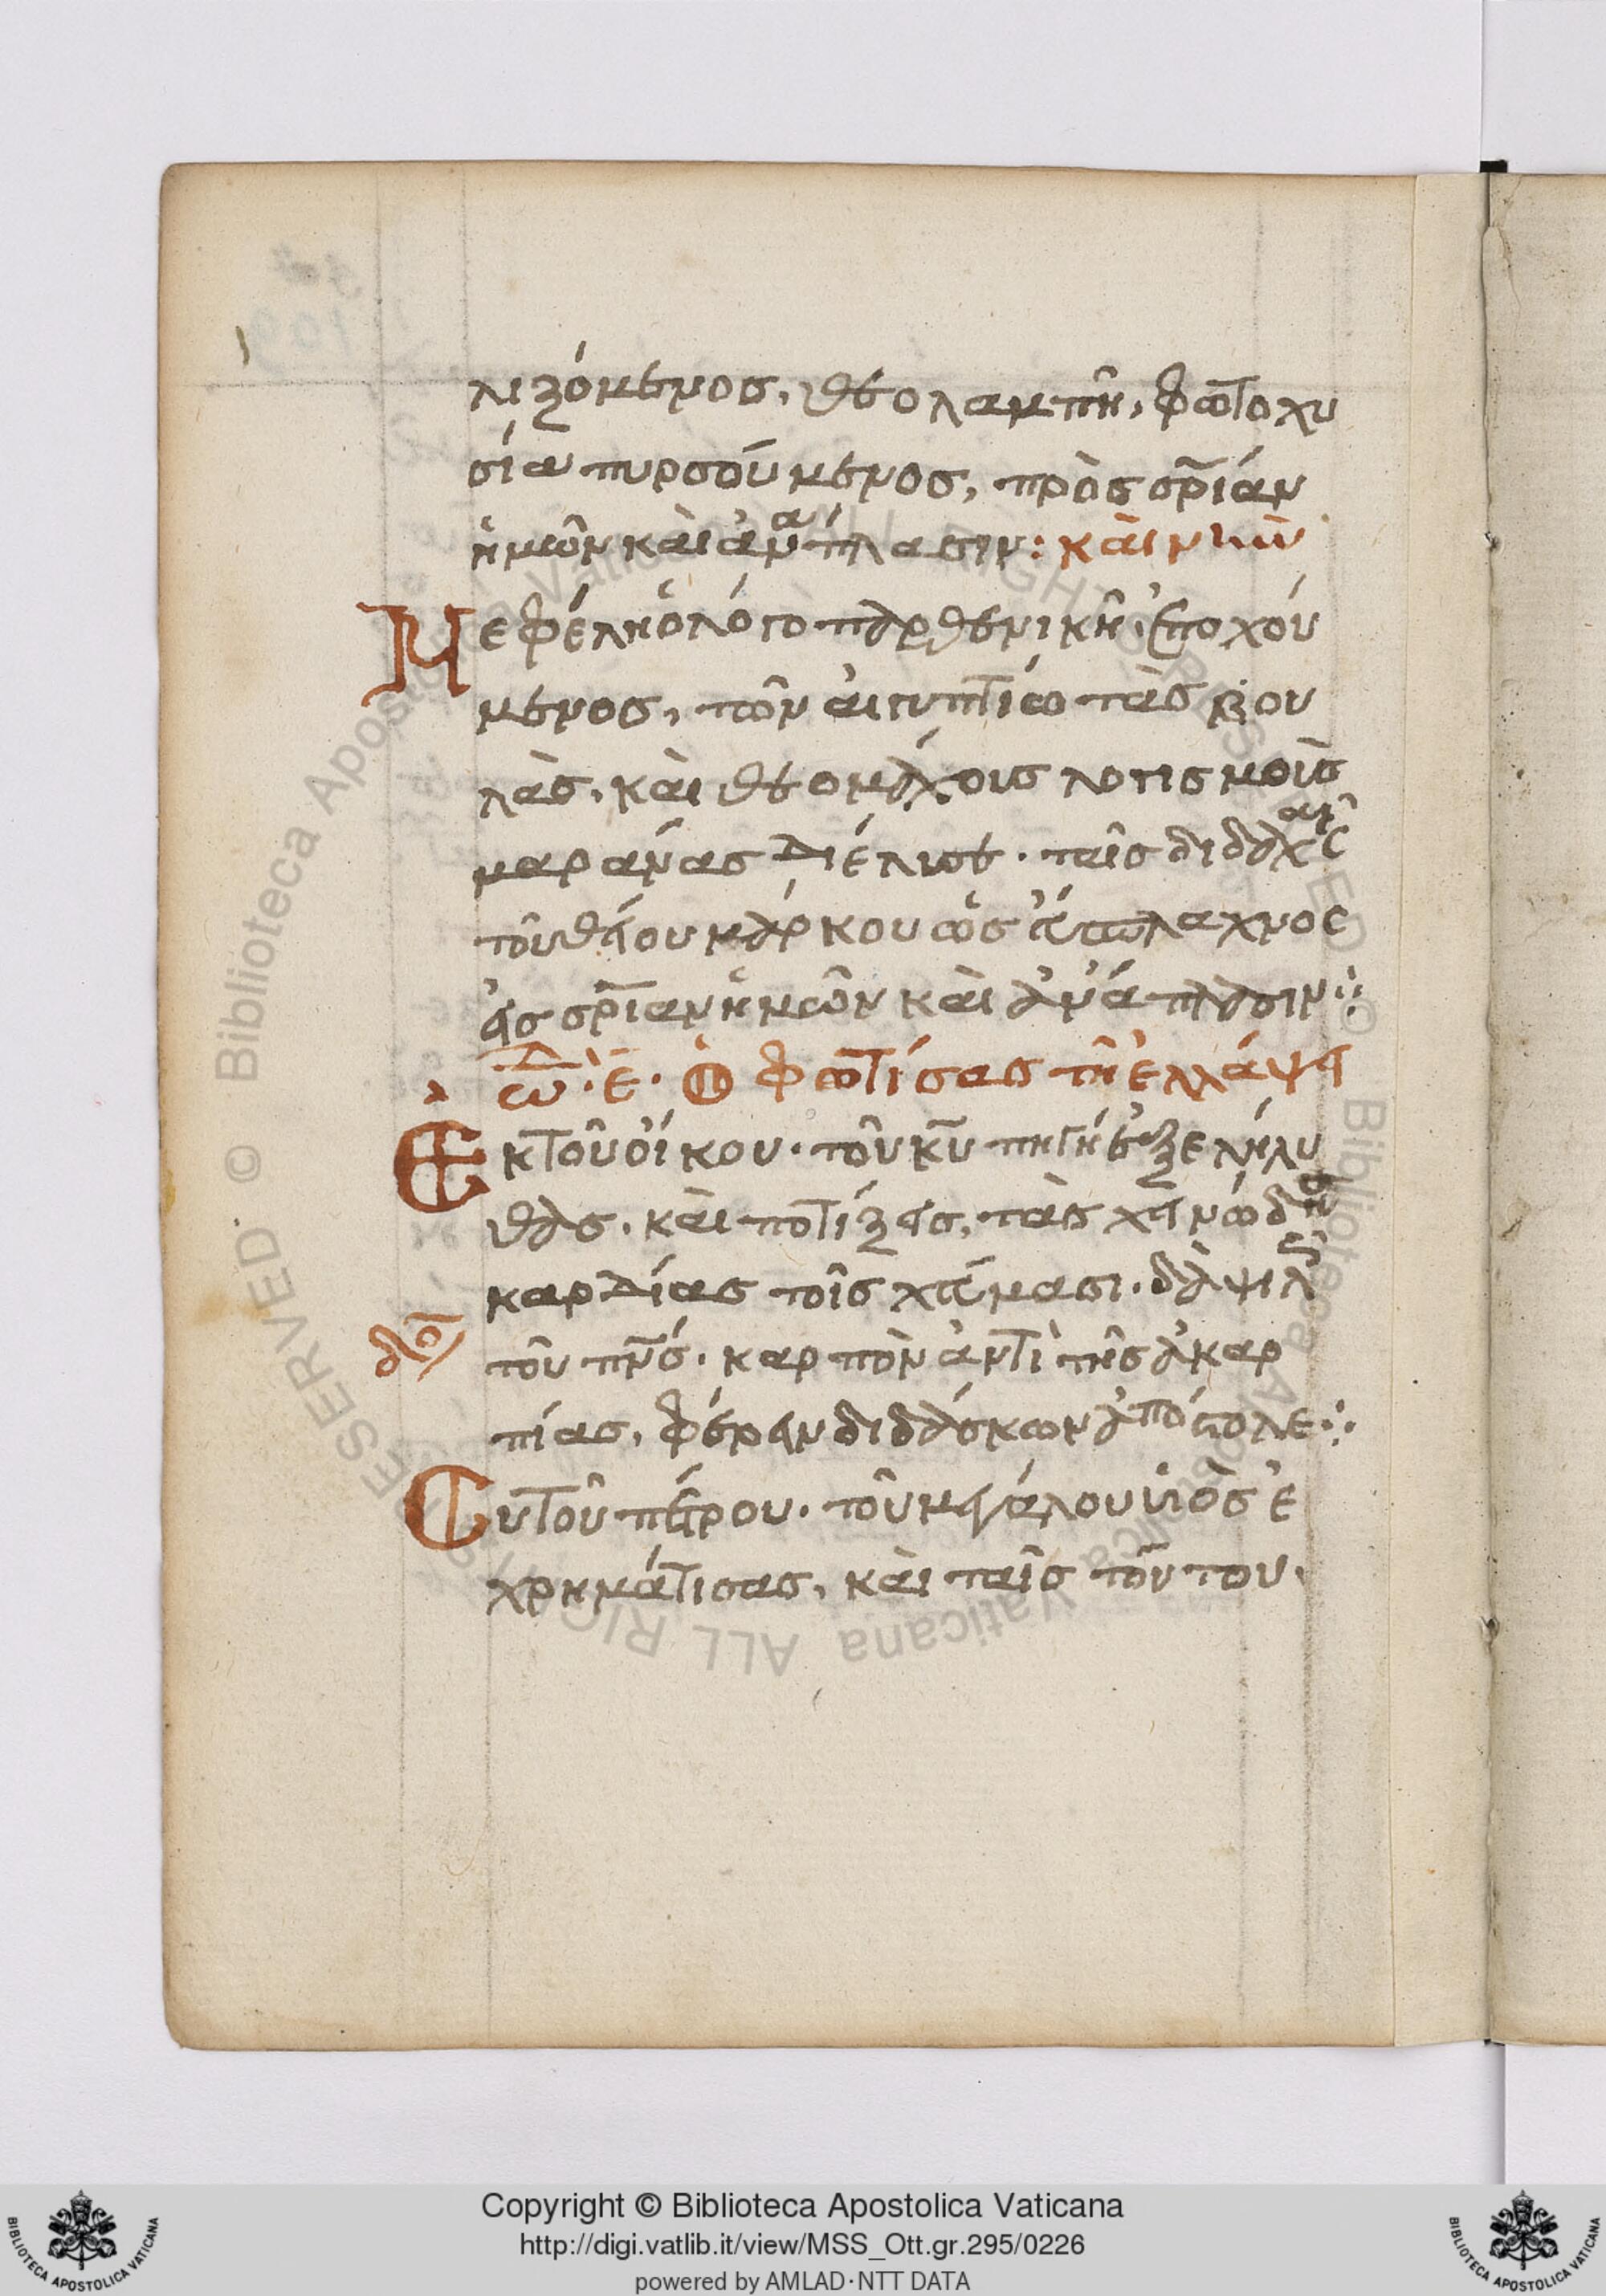 λιζόμενος, θεολαμπῆ, φωτοχυ
σία πυρσούμενος, πρὸς σρίαν
ἡμῶν καὶ ἀνάπλασιν: καὶ νῦν
Νεφέλη ὁλόγω παρθενικῆ, ἐποχού
μενος, τῶν αἰγυπτίω τὰς βου
λὰς, καὶ θεομάχους λογισμοὺς
μαράνας διέλυσε. ταῖς διδαχαῖς
τοῦ θείου μάρκου ὡς εὔσπλαχνος
εἰς σρίαν ἡμῶν καὶ ἀνάπλασιν:
ὠ. ε. Ὁ φωτίσας τῆ ἐλλάψει
Ἐκ τοῦ οἴκου. τοῦ κυ πηγὴ ἐξελήλυ
θας. καὶ ποτίζεις, τὰς χεινώδης
καρδίας τοῖς χεύμασι. δαψιλῶς
τοῦ πνς. καρπὸν ἀντὶ τῆς ἀκαρ
πίας, φέρειν διδάσκων ἀπόστολε:
Συ τοῦ πέτρου. τοῦ μεγάλου υἱὸς ἐ
χρημάτισας, καὶ ταῖς τούτου.
Copyright © Biblioteca Apostolica Vaticana
http://digi.vatlib.it/view/MSS_Ott.gr.295/0226
powered by AMLAD·NTT DATA